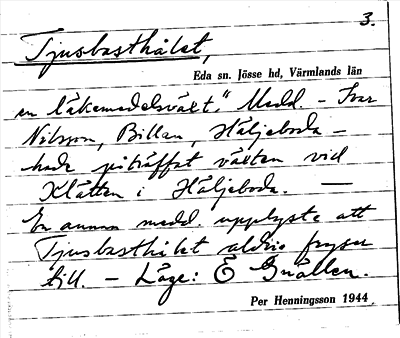 3.
Tjusbasthålet,
Eda sn. Jösse hd, Värmlands län
en läkemedelsväxt". Medd. - Ivar
Nilsson, Billan, Häljeboda -
hade påträffat växten vid
Klätten i Häljeboda. —
En annan medd. upplyste att
Tjusbasthålet aldrig fryser
till. - Läge: Ö Gnällen.
Per Henningsson 1944